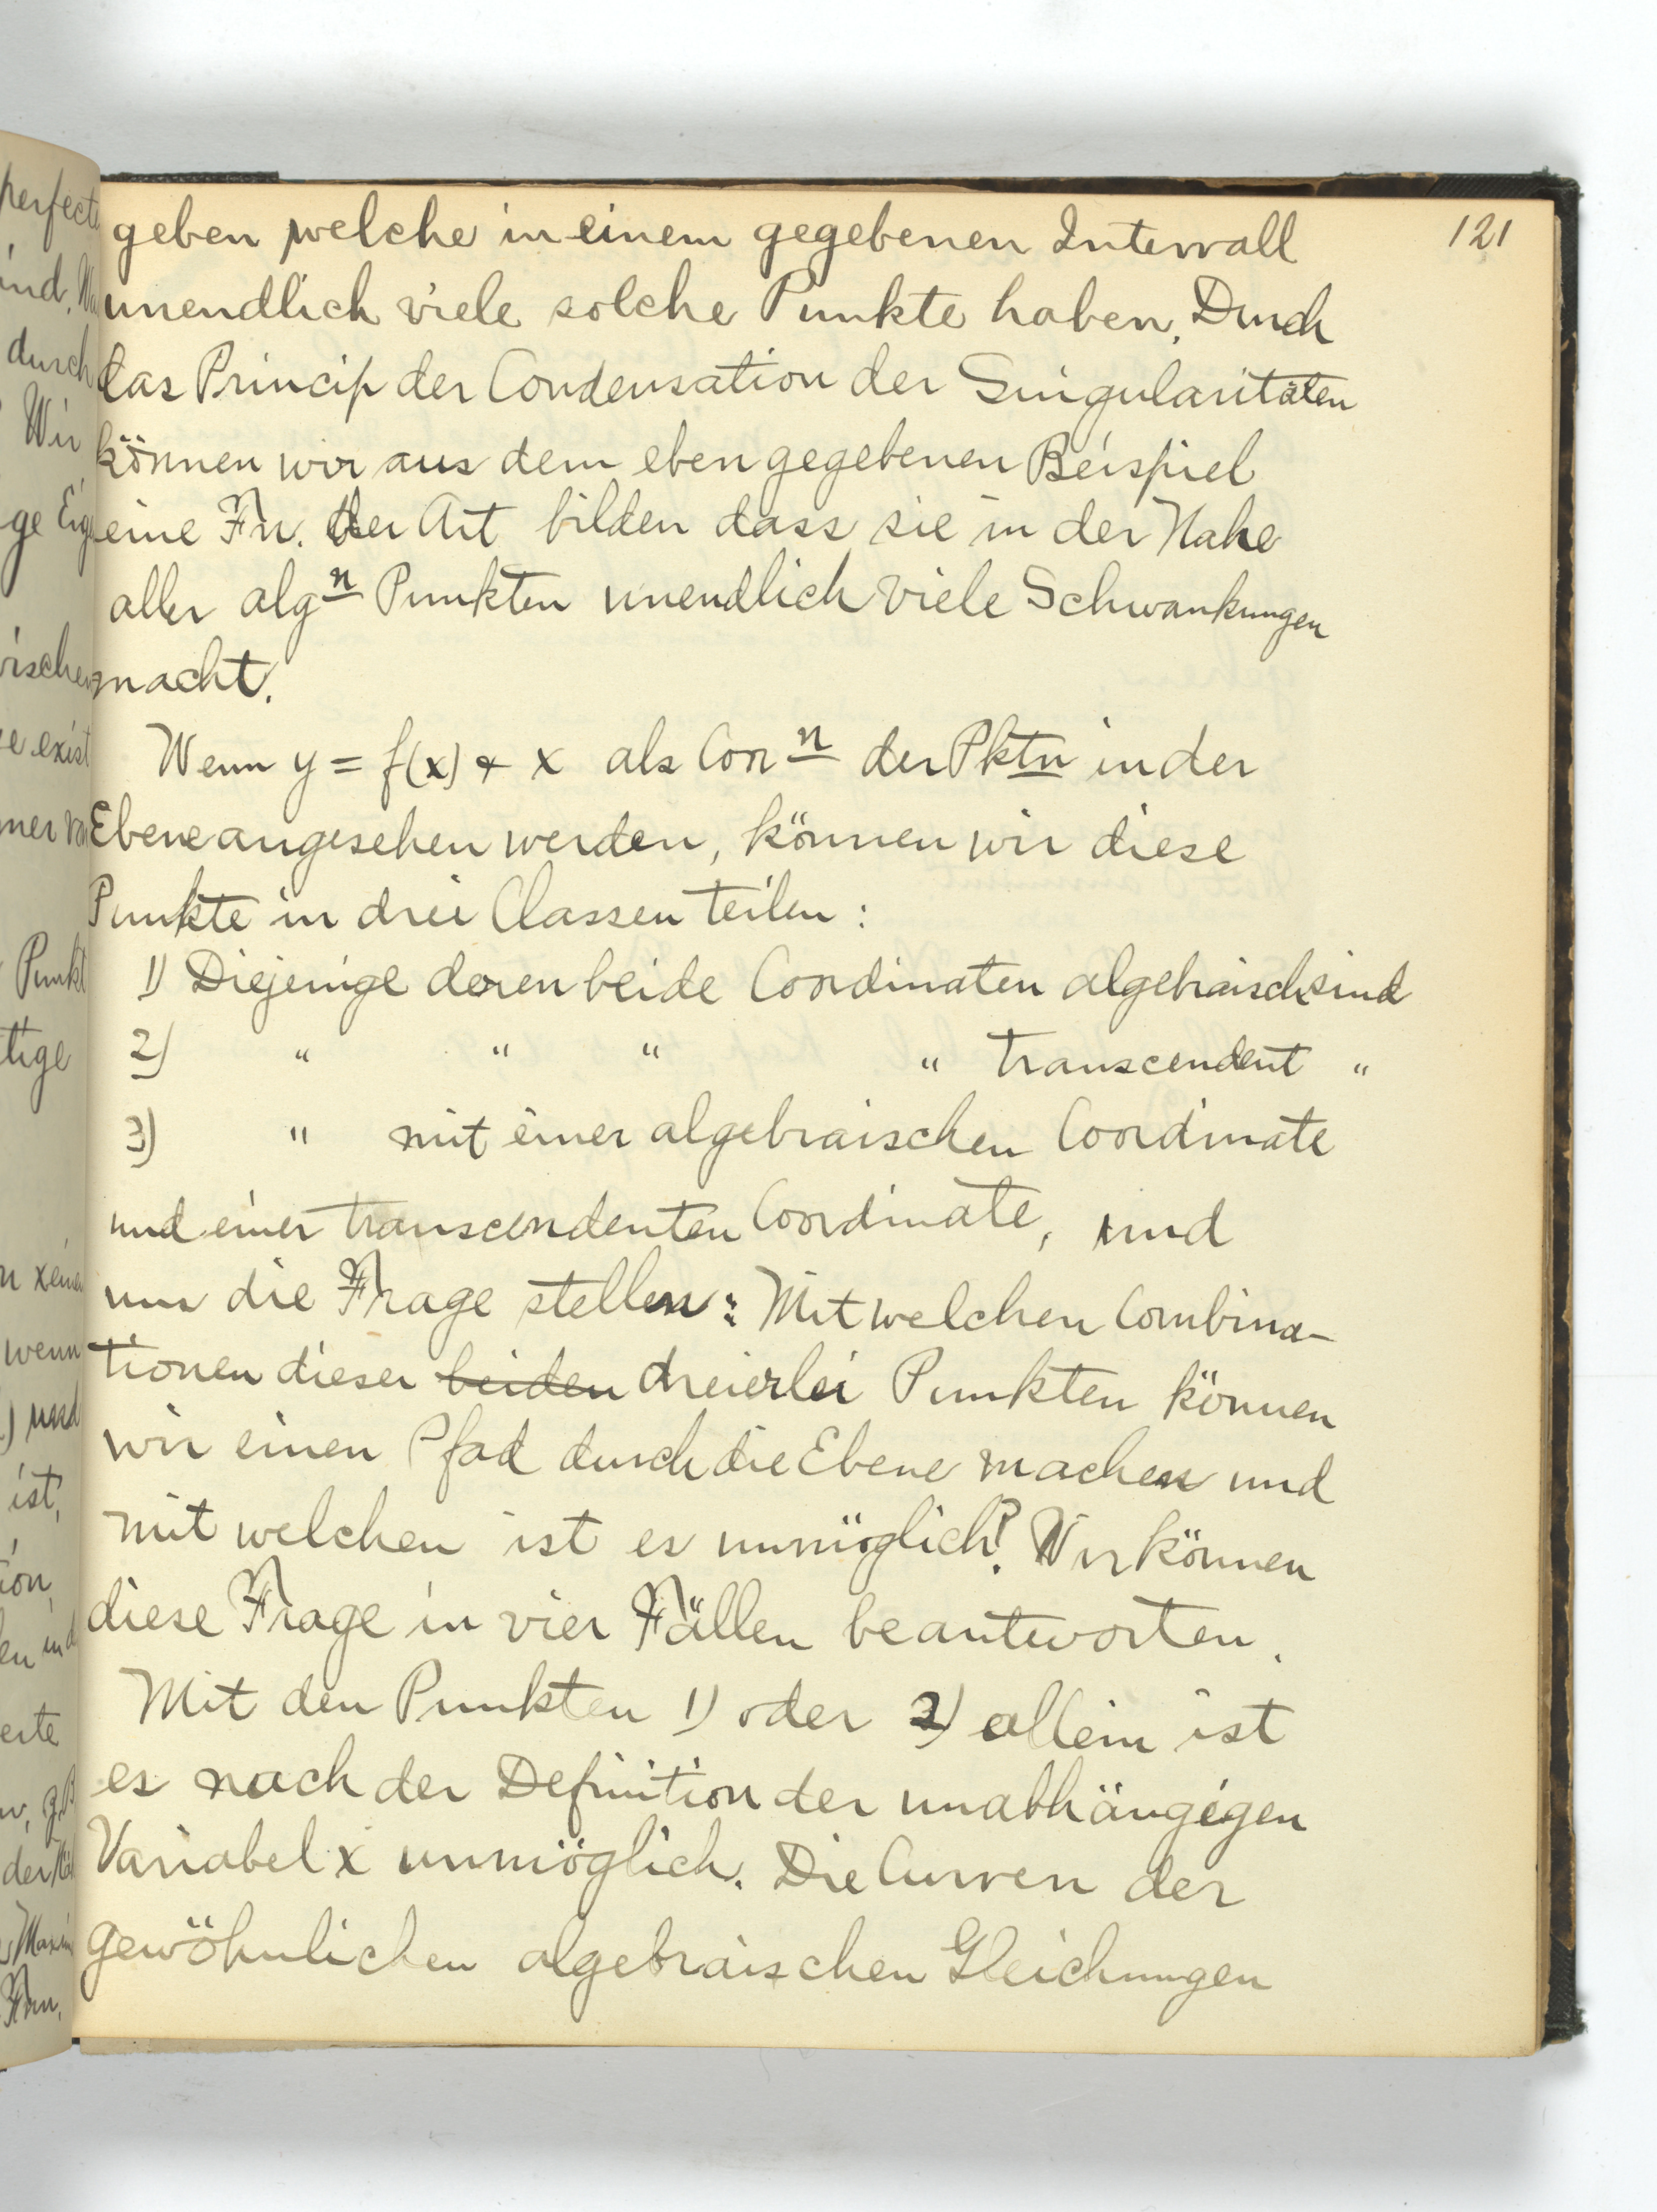 121
geben welche in einem gegebenen Intervall
unendlich viele solche Punkte haben. Durch
das Princip der Condensation der Singularitäten
können wir aus dem eben gegebenen Beispiel
eine Fn. der Art bilden dass sie in der Nahe
aller algn Punkten unendlich viele Schwankungen
macht.
Wenn y = f(x) & x als Corn der Pktn in der
Ebene angesehen werden, können wir diese
Punkte in drei Classen teilen:
1) Diejenige deren beide Coordinaten algebraisch sind
2) " " " " transcendent "
3) " mit einer algebraischen Coordinate
und einer transcendenten Coordinate, und
nun die Frage stellen: Mit welchen Combina-
tionen dieser beiden dreierlei Punkten können
wir einen Pfad durch die Ebene machen und
mit welchen ist es unmöglich? Wir können
diese Frage in vier Fällen beantworten.
Mit den Punkten 1) oder 2) allein ist
es nach der Definition der unabhängigen
Variabel x unmöglich. Die Curven der
gewöhnlichen algebraischen Gleichungen